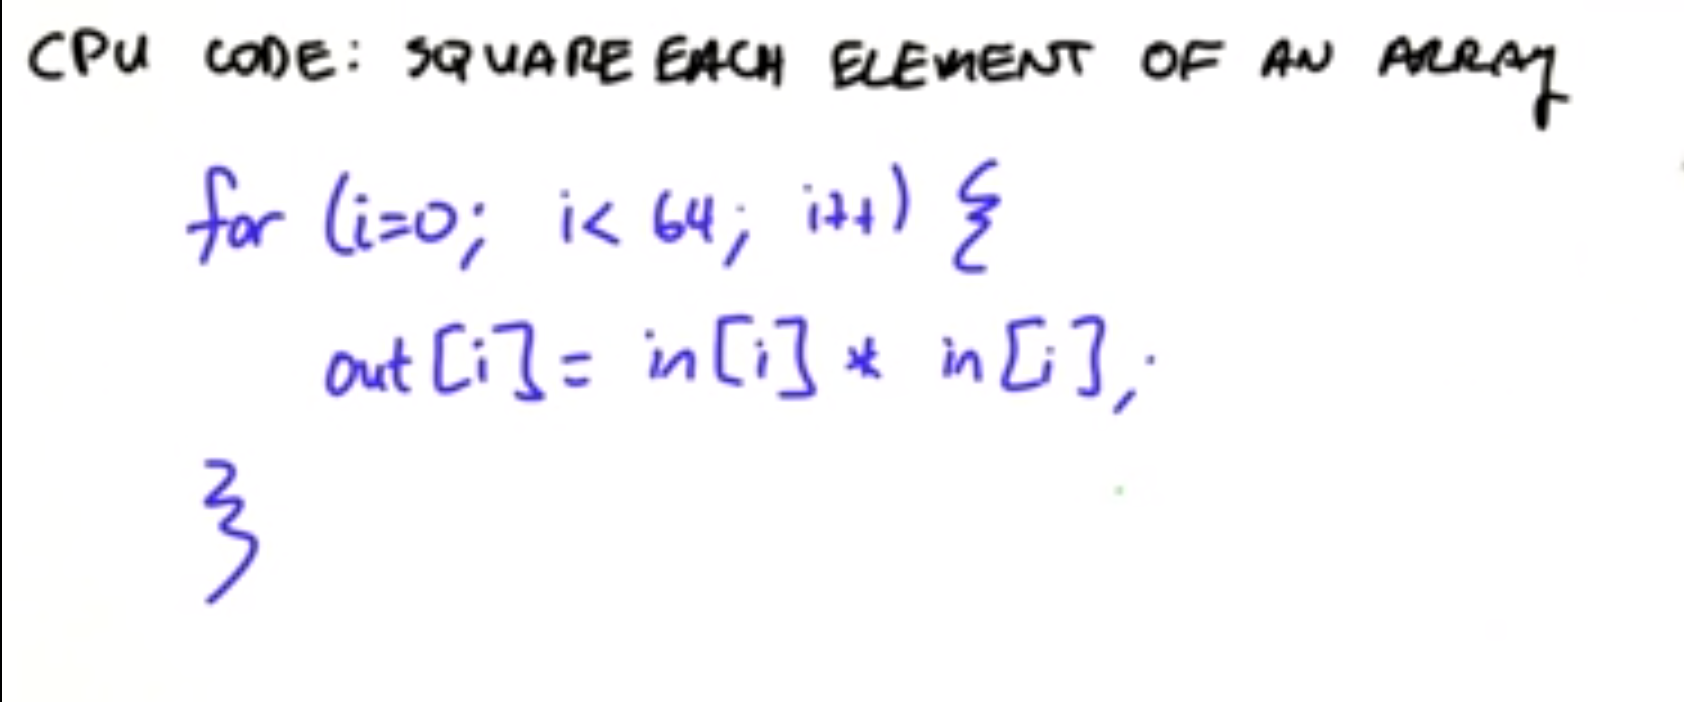 CPU CODE: SQUARE EACH ELEMENT OF AN ARRAY
for (i=0; i< 64; i++) {
out[i] = in[i] * in[i];
}